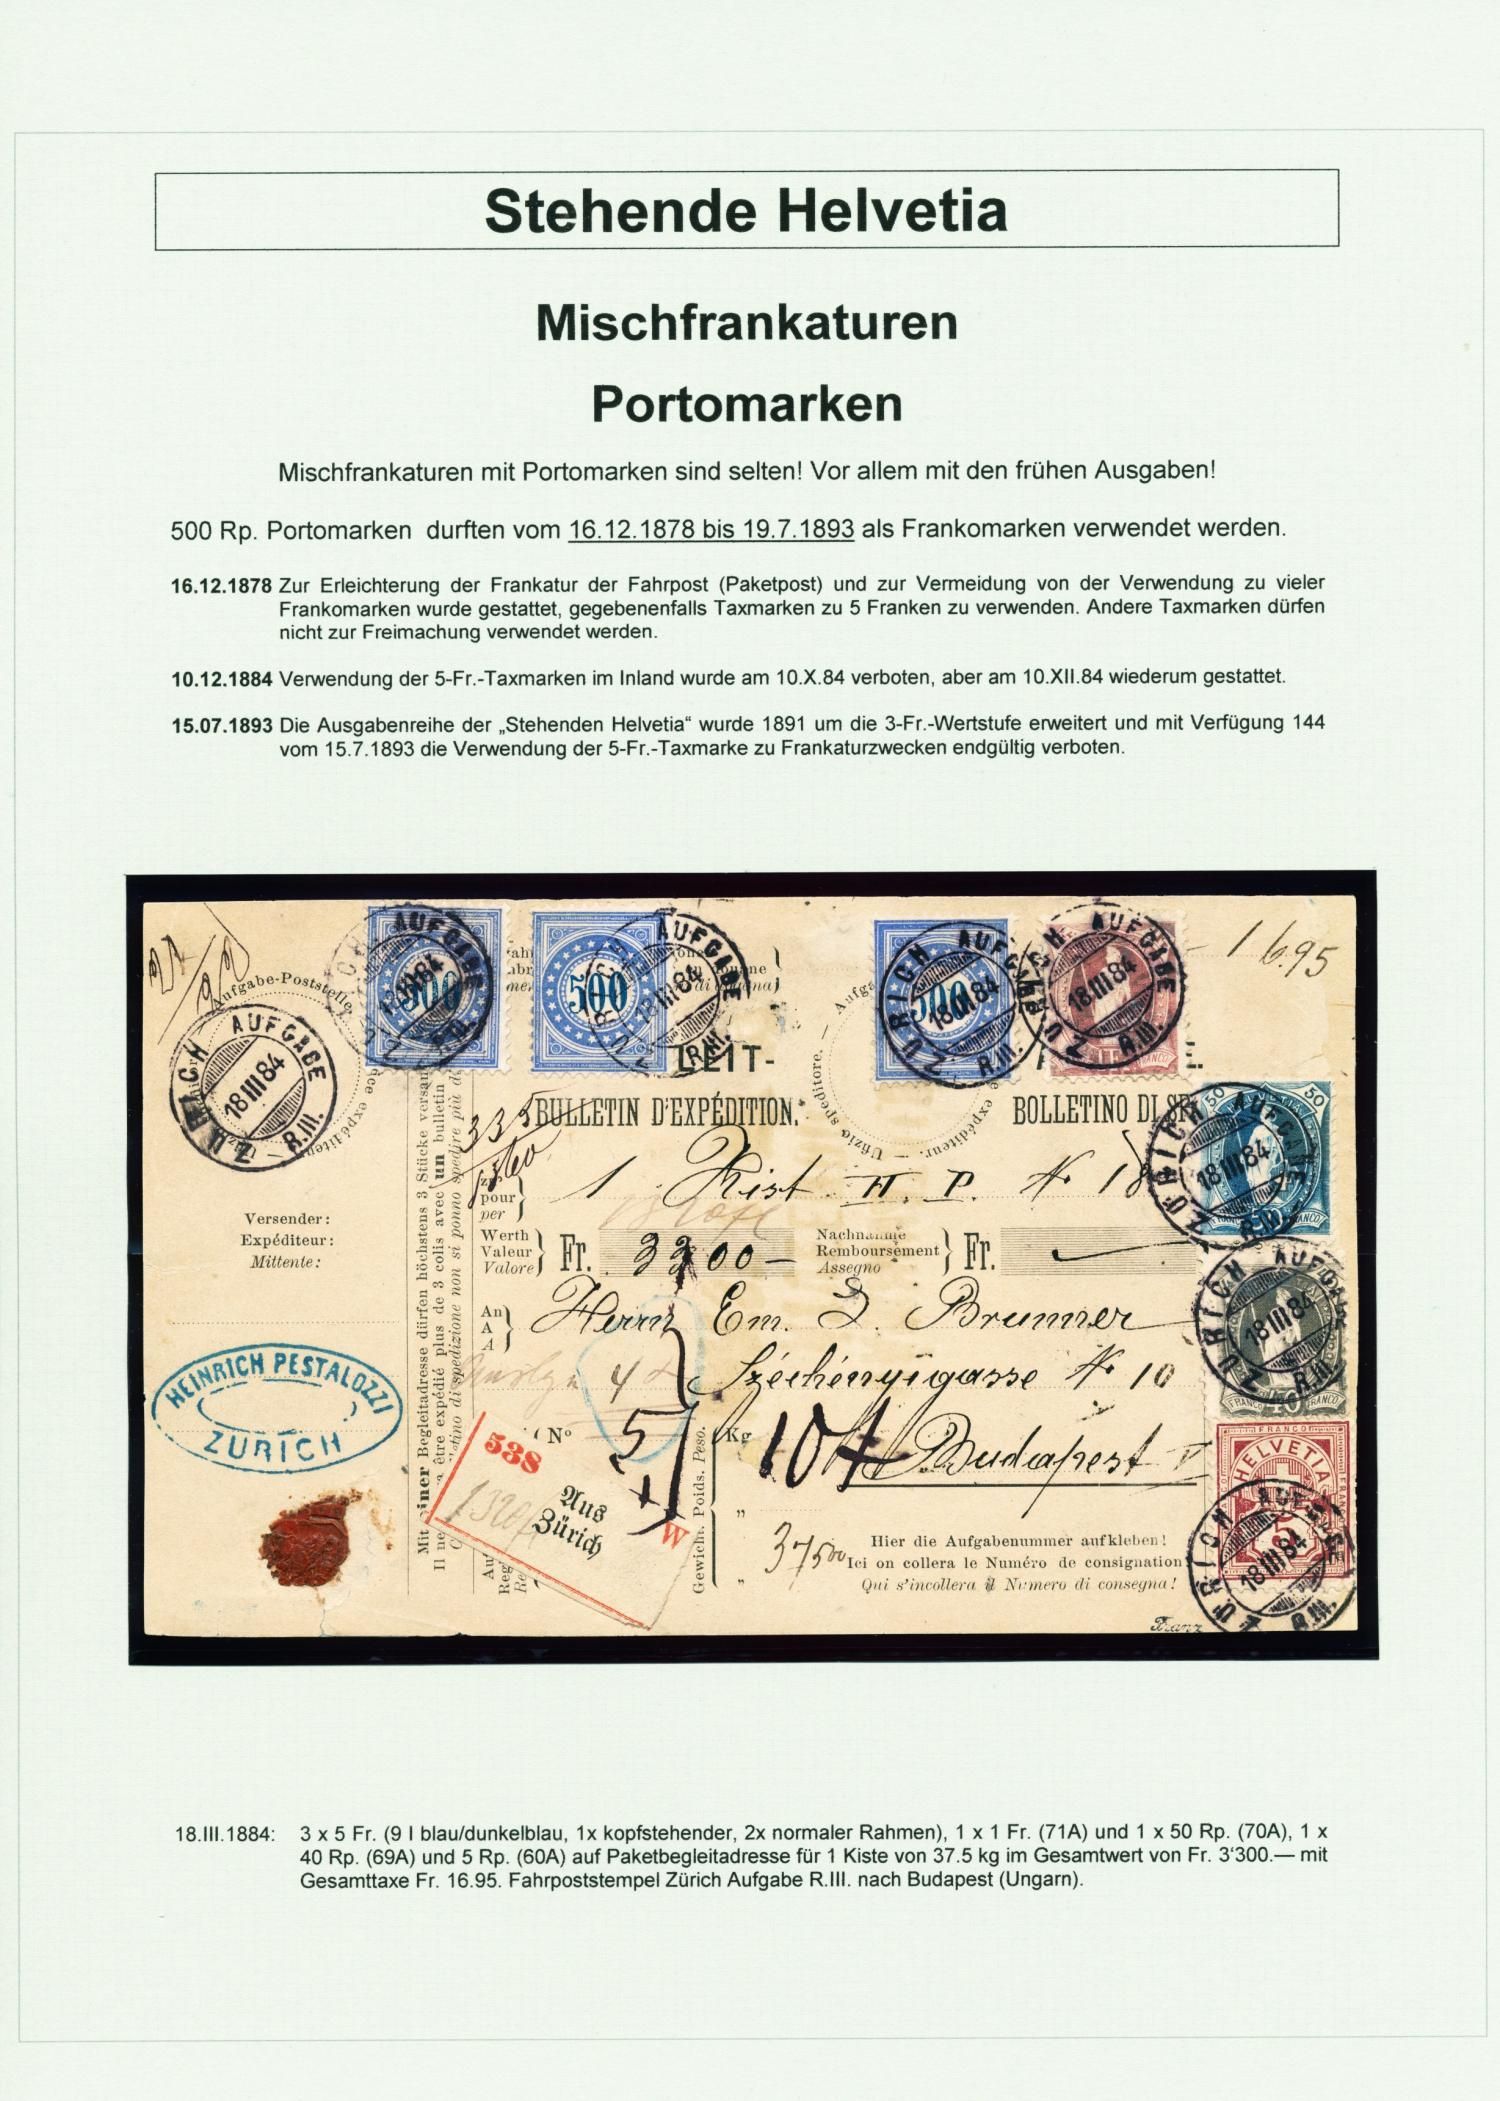 Stehende Helvetia
Mischfrankaturen
Portomarken
Mischfrankaturen mit Portomarken sind selten! Vor allem mit den frühen Ausgaben!
500 Rp. Portomarken durften vom 16.12.1878 bis 19.7.1893 als Frankomarken verwendet werden.
16.12.1878 Zur Erleichterung der Frankatur der Fahrpost (Paketpost) und zur Vermeidung von der Verwendung zu vieler
Frankomarken wurde gestattet, gegebenenfalls Taxmarken zu 5 Franken zu verwenden. Andere Taxmarken dürfen
nicht zur Freimachung verwendet werden.
10.12.1884 Verwendung der 5-Fr.-Taxmarken im Inland wurde am 10.X.84 verboten, aber am 10.XII.84 wiederum gestattet.
15.07.1893 Die Ausgabenreihe der „Stehenden Helvetia“ wurde 1891 um die 3-Fr.-Wertstufe erweitert und mit Verfügung 144
vom 15.7.1893 die Verwendung der 5-Fr.-Taxmarke zu Frankaturzwecken endgültig verboten.
500
500
500
1 6.95
Aufgabe-Poststelle
ZÜRICH AUFGABE R.III.
18 III 84
ZÜRICH AUFGABE R.III.
18 III 84
LEIT-
BULLETIN D'EXPÉDITION.
BOLLETINO DI
Ufizio speditore.
50 HELVETIA 50
FRANCO
1 Kist H. P. No 18
pour
per
Versender:
Expéditeur:
Mittente:
Werth
Valeur
Valore
Fr. 3300 —
Nachnahme
Remboursement
Assegno
Fr.
An
A
A
Herrn Em. Brunner
Széchényigasse No 10
Budapest
FRANCO 40 FRANCO
FRANCO
HELVETIA
5
HEINRICH PESTALOZZI
ZÜRICH
Mit einer Begleitadresse dürfen höchstens 3 Stücke
No
538
Aus
Zürich
W
5
Kg
104
Gewicht. Poids. Peso.
37500
Hier die Aufgabenummer aufkleben!
Ici on collera le Numéro de consignation
Qui s'incollera il Numero di consegna!
Franz
18.III.1884: 3 x 5 Fr. (9 I blau/dunkelblau, 1x kopfstehender, 2x normaler Rahmen), 1 x 1 Fr. (71A) und 1 x 50 Rp. (70A), 1 x
40 Rp. (69A) und 5 Rp. (60A) auf Paketbegleitadresse für 1 Kiste von 37.5 kg im Gesamtwert von Fr. 3'300.— mit
Gesamttaxe Fr. 16.95. Fahrpoststempel Zürich Aufgabe R.III. nach Budapest (Ungarn).